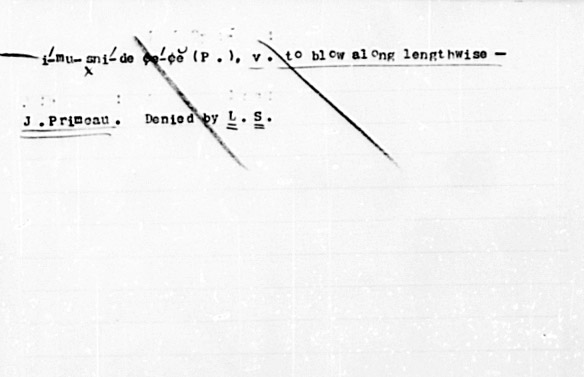 i´mu-sni´-de ¢e´-¢ĕ (P.), v. to blow along lengthwise —
x
J. Primeau. Denied by L. S.